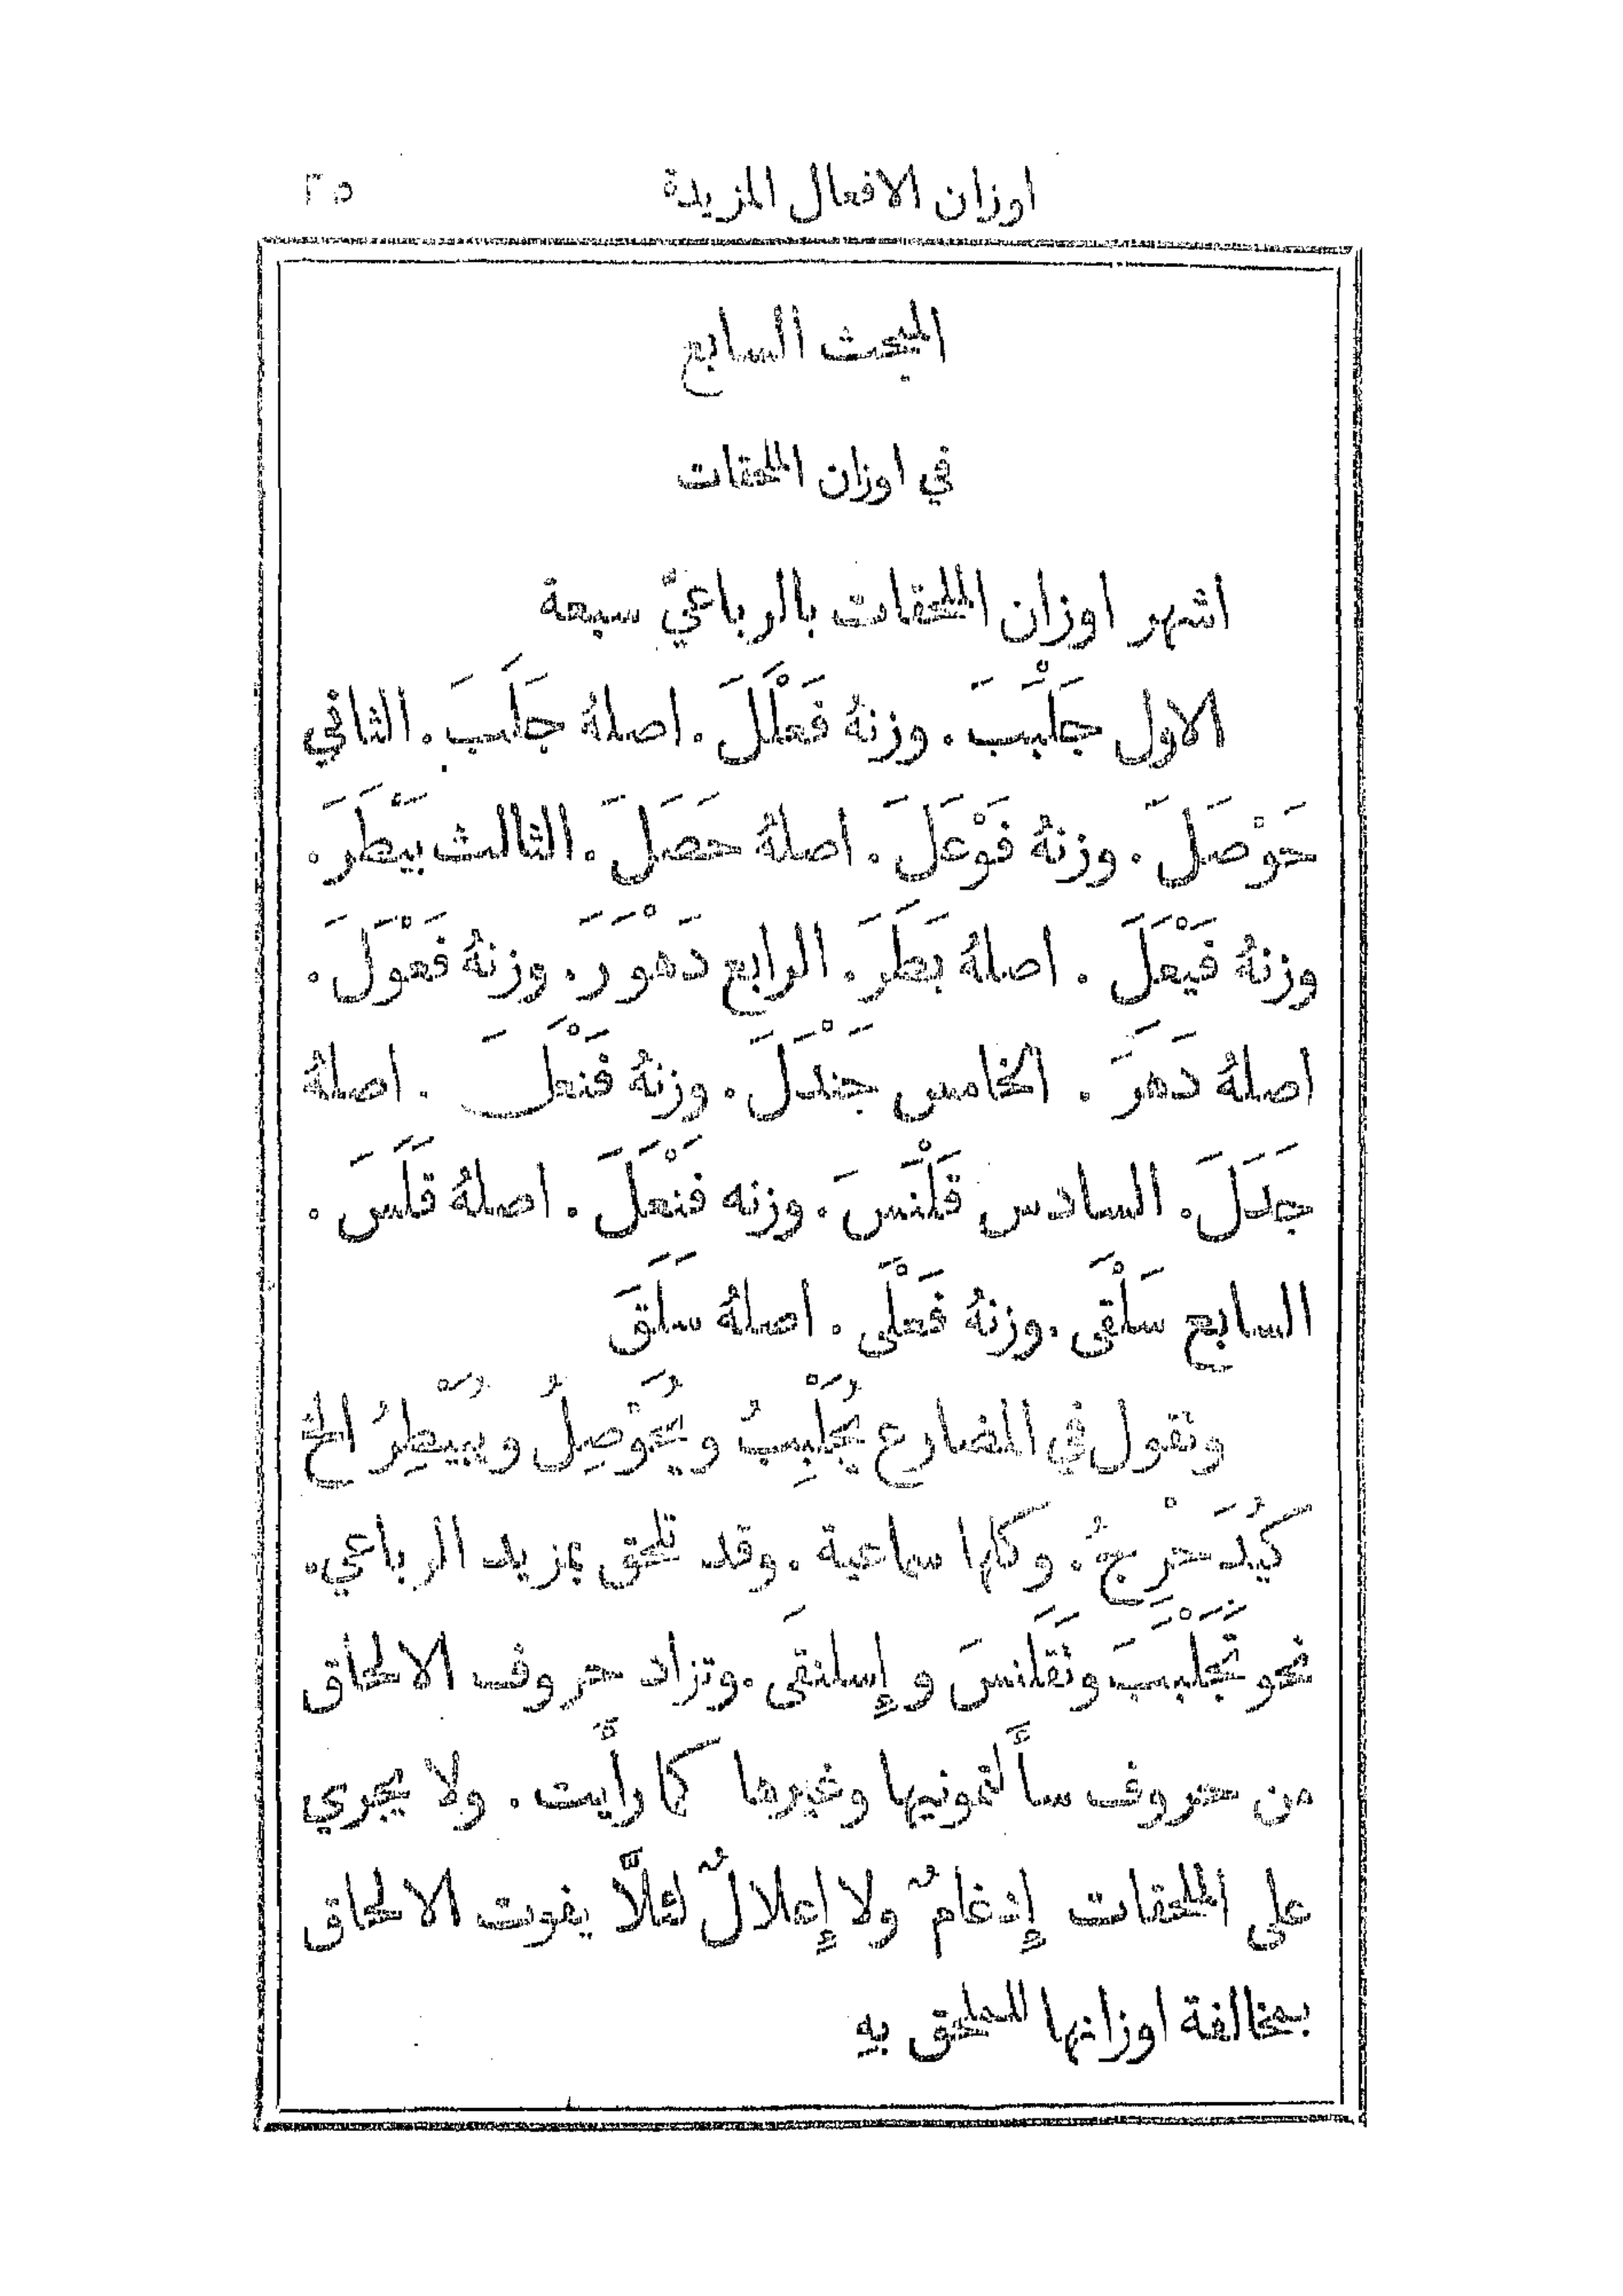 اوزان الافعال المزيدة ٢٥
المبحث السابع
في اوزان الملحقات
اشهر اوزان الملحقات بالرباعيّ سبعة
الاول جَلْبَبَ. وزنهُ فَعْلَلَ. اصلهُ جَلَبَ. الثاني
حَوْصَلَ. وزنهُ فَوْعَلَ. اصلهُ حَصَلَ. الثالث بَيْطَرَ.
وزنهُ فَيْعَلَ. اصلهُ بَطَرَ. الرابع دَهْوَرَ. وزنهُ فَعْوَلَ.
اصلهُ دَهَرَ. الخامس جَنْدَلَ. وزنهُ فَنْعَلَ. اصلهُ
جَدَلَ. السادس قَلْنَسَ. وزنه فَنْعَلَ. اصلهُ قَلَسَ.
السابع سَلْقَى. وزنهُ فَعْلَى. اصلهُ سَلَقَ
وتقول في المضارع يُجَلْبِبُ ويُحَوْصِلُ ويُبَيْطِرُ الخ
كَيُدَحْرِجُ. وكلها سماعية. وقد تلحق بمزيد الرباعي.
نحو تَجَلْبَبَ وتَقَلنَسَ وإِسلنقَى. وتزاد حروف الالحاق
من حروف سأَلتمونيها وغيرها كما رأَيت. ولا يجري
على الملحقات إِدغامٌ ولا إِعلالٌ لئلَّا يفوت الالحاق
بمخالفة اوزانها للملحق بهِ